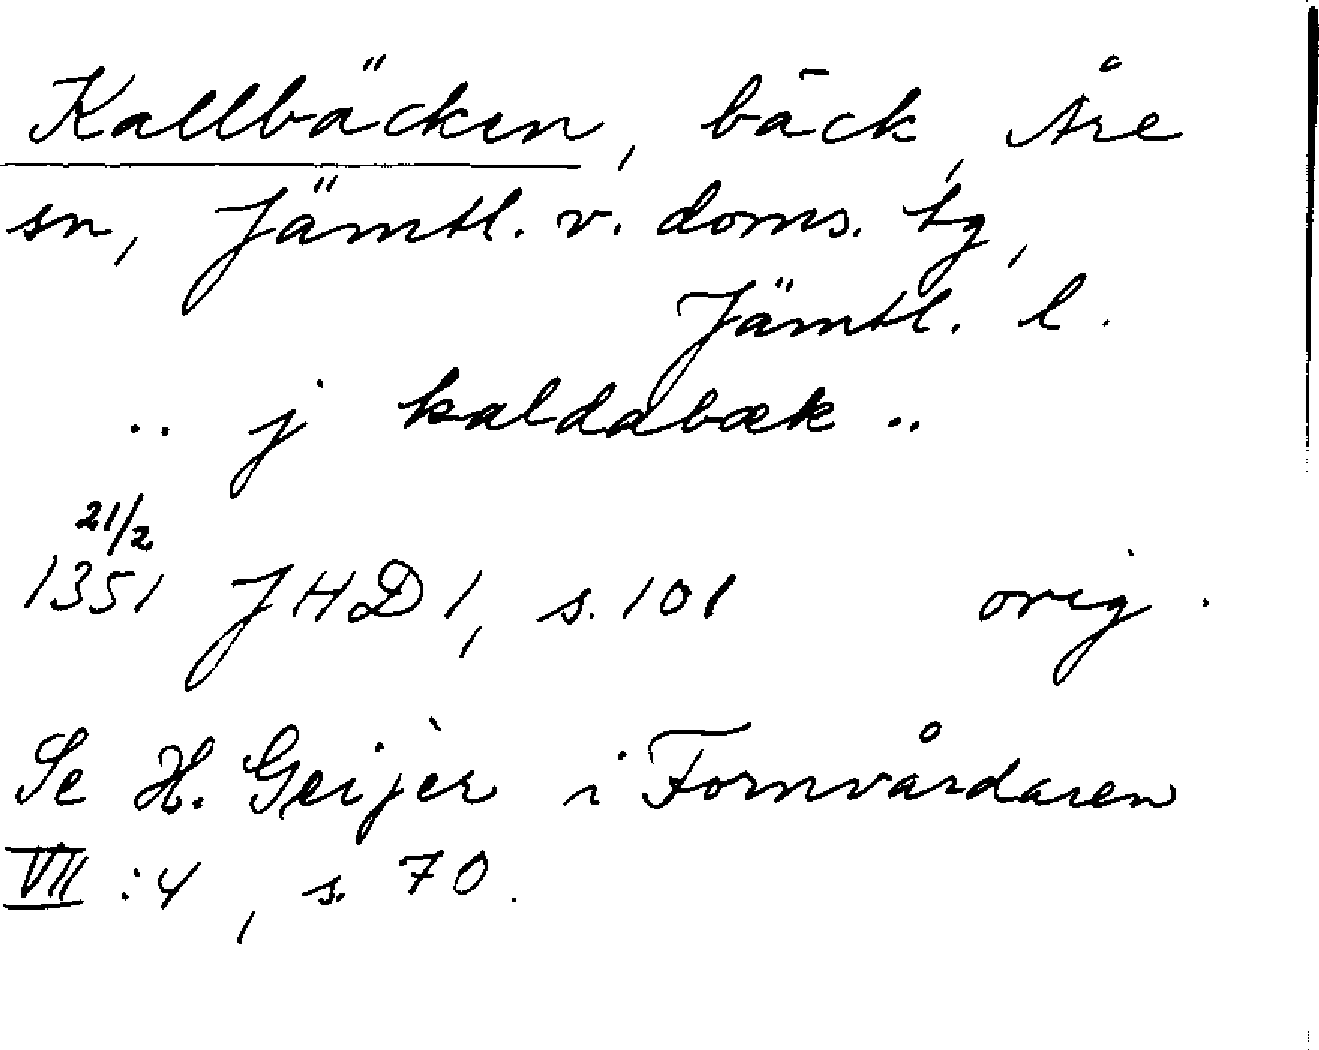 Kallbäcken, bäck, Åre
sn, Jämtl. v. doms. tg,
Jämtl. l.
.. j kaldabæk ..
21/2
1351 JHD 1, s. 101 orig.
Se H. Geijer i Fornvårdaren
VII : 4, s. 70.